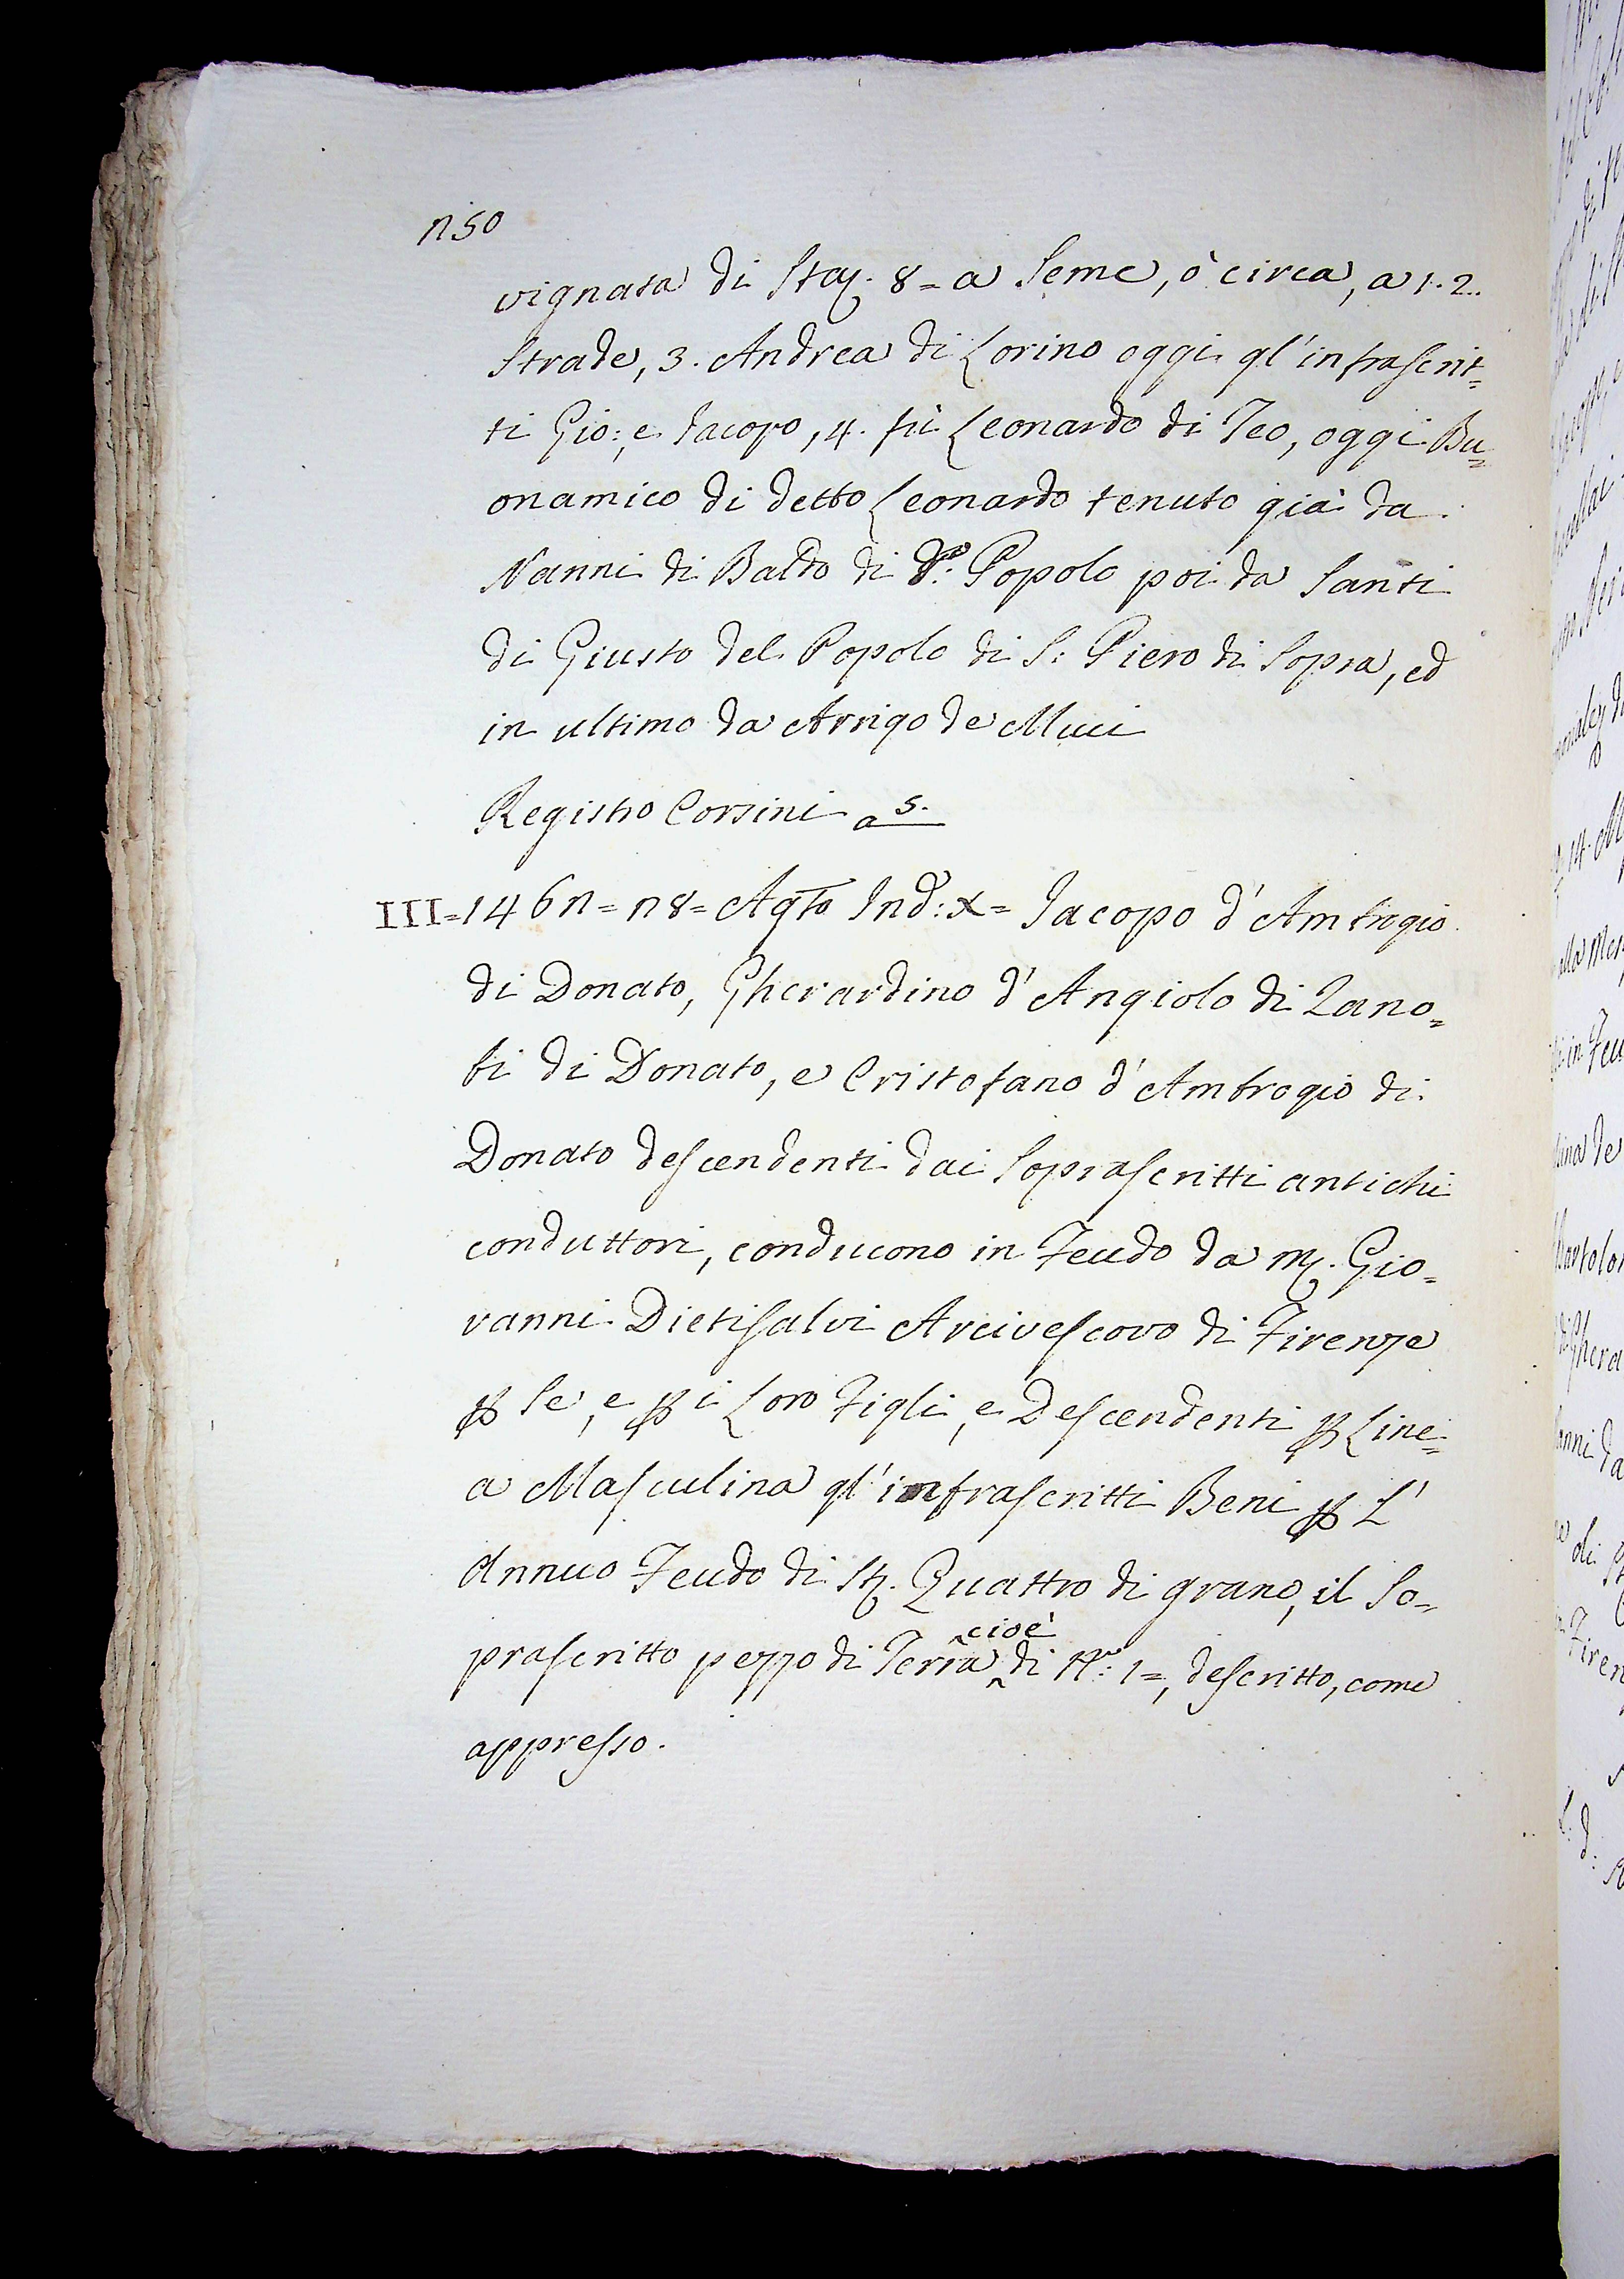 150
vignata di Staj. 8= a Seme, ò circa, a 1. 2.
Strade, 3. Andrea di Lorino oggi gl'infrascrit=
ti Gio: e Jacopo, 4. fù Leonardo di Teo, oggi Bu=
onamico di detto Leonardo tenuto già da
Nanni di Baldo di d.º Popolo poi da Santi
di Giusto del Popolo di S: Piero di Sopra, ed
in ultimo da Arrigo de Muci
Registro Corsini a 5.
III=1461=18= Agto Ind: X= Jacopo d'Ambrogio
di Donato, Gherardino d'Angiolo di Zano=
bi di Donato, e Cristofano d'Ambrogio di
Donato descendenti dai Soprascritti antichi
conduttori, conducono in Feudo da M. Gio=
vanni Dietisalvi Arcivescovo di Firenze
ꝑ Se, e ꝑ i Loro Figli, e Descendenti ꝑ Line=
a Masculina gl'infrascritti Beni ꝑ L'
Annuo Feudo di St. Quattro di grano, il So=
prascritto pezzo di Terra cioè di N.º: 1=, descritto, come
appresso.